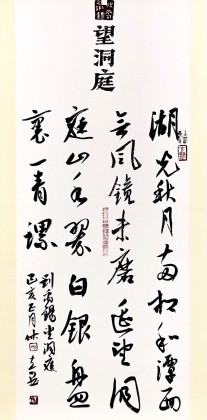 望洞庭
湖光秋月两相和潭面
无风镜未磨遥望洞
庭山水翠白银盘
裏一青螺
刘禹锡望洞庭
己亥正月林